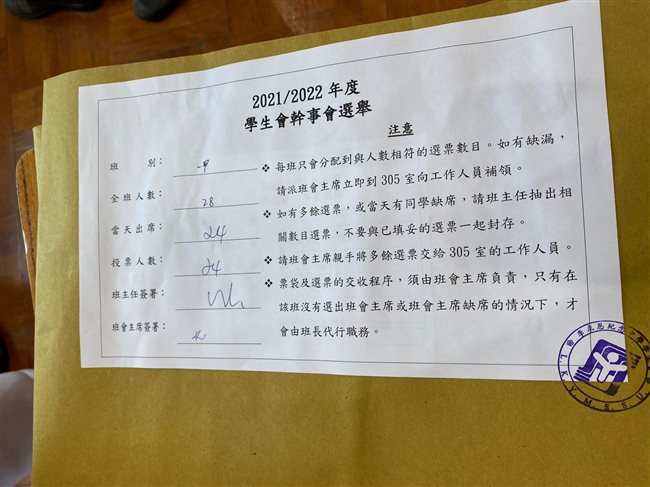 2021/2022 年度
學生會幹事會選舉
注意
班 別：
全班人數： 28
當天出席： 24
投票人數： 24
班主任簽署：
班會主席簽署：
❖ 每班只會分配到與人數相符的選票數目。如有缺漏，
請派班會主席立即到 305 室向工作人員補領。
❖ 如有多餘選票，或當天有同學缺席，請班主任抽出相
關數目選票，不要與已填妥的選票一起封存。
❖ 請班會主席親手將多餘選票交給 305 室的工作人員。
❖ 票袋及選票的交收程序，須由班會主席負責，只有在
該班沒有選出班會主席或班會主席缺席的情況下，才
會由班長代行職務。